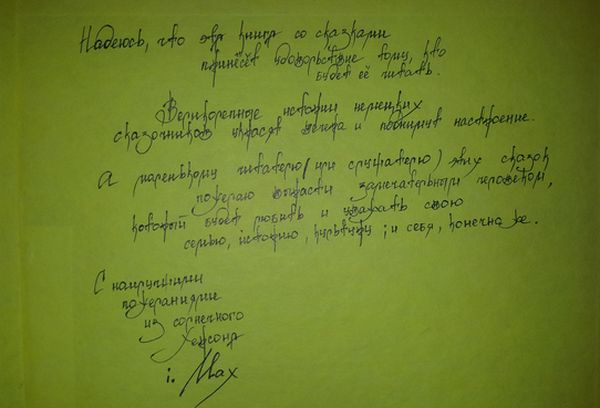 Надеюсь, что эта книга со сказками
принесёт удовольствие тому, кто
будет её читать.
Великолепные истории немецких
сказочников украсят вечера и поднимут настроение.
А маленькому читателю (или слушателю) этих сказок
пожелаю вырасти замечательным человеком,
который будет любить и уважать свою
семью, историю, культуру; и себя, конечно же.
С наилучшими
пожеланиями
из солнечного
Херсона
i. Max